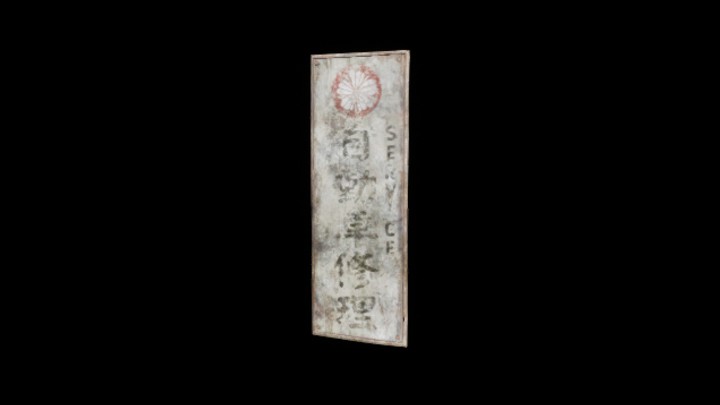 自動車修理
SERVICE